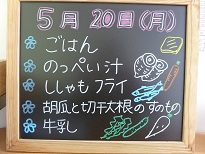 5月20日(月)
ごはん
のっぺい汁
ししゃもフライ
胡瓜と切干大根のすのもの
牛乳